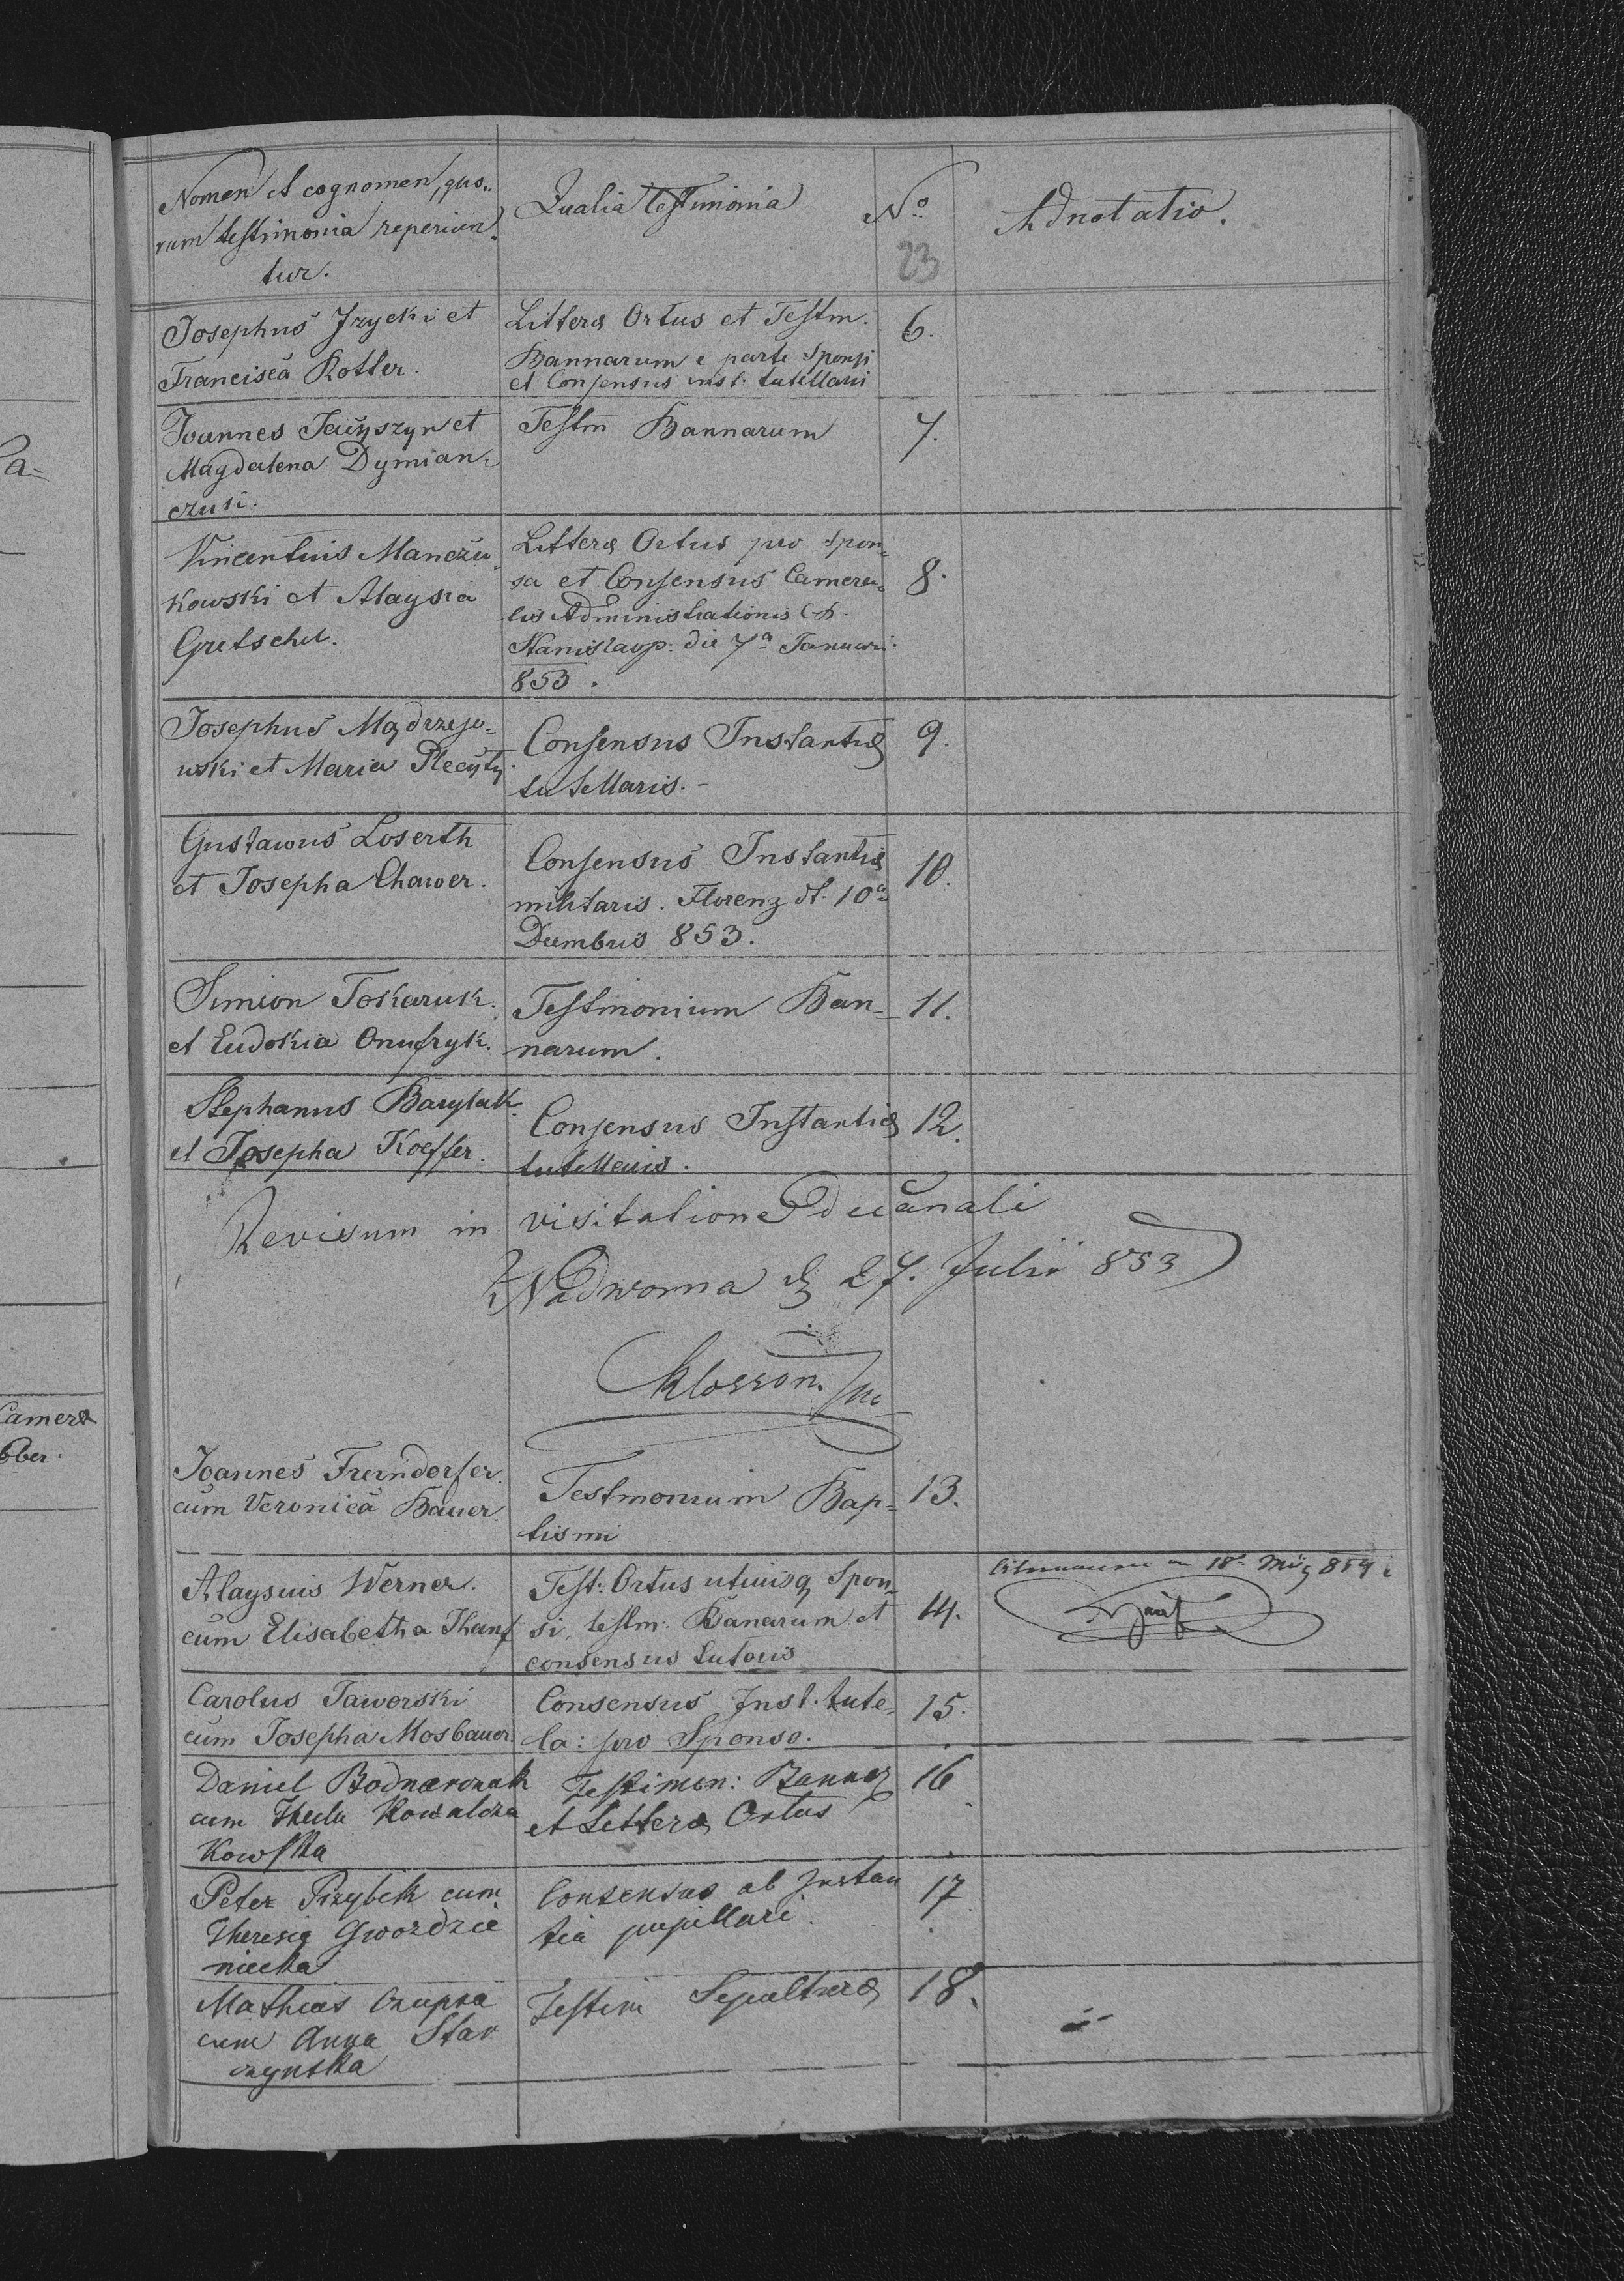 Nomen et cognomen, quo-
rum testimonia reperiun-
tur.
Qualia testimonia
No
23
Adnotatio.
Josephus Jzycki et
Francisca Rotter.
Litteræ Ortus et Testm.
Bannarum e parte Sponsi
et Consensus inst: tutellaris
6.
Joannes
et
Magdalena Dymian-
czuk.
Testm Bannarum
7.
Vincentius Manczu-
kowski et Aloysia
Gretschel.
Litteræ Ortus pro Spon-
sa et Consensus Camera-
lis Administrationis
Stanislaop: die 7a Januarii
853.
8.
Josephus Mądrzejo-
wski et Maria Plecyty
Consensus Instantiæ
tutellaris.-
9.
Gustavus Loserth
et Josepha Chawer.
Consensus Instantiæ
militaris. Florenz dt. 10a
Decembris 853.
10.
Simion Tokaruk
et Eudokia Onufryk.
Testimonium Ban-
narum.
11.
Stephanus Barylak
et Josepha Koeffer.
Consensus Instantiæ
tutellaris.
12.
Revisum in visitatione Decanali
Nadworna d 27. Julii 853
Joannes Freindorfer
cum Veronica Bauer.
Testmonium Bap-
tismi
13.
Aloysius Werner.
cum Elisabetha
Test: Ortus utriusq Spon-
si, testm: Banarum et
consensus tutoris
14.
18 854
Carolus Jaworski
cum Josepha Mosbauer.
Consensus Inst. tute-
la: pro Sponso.
15.
Daniel Bodnarczuk
cum Thecla Kowalcza
kowska
Testimon: Bannor
et Litteræ Ortus
16
Peter Przybek cum
Theresia Gwozdzie
niecka
Consensus ab Instan
tia pupillari.
17
Mathias Czupra
cum Anna Star
czynska
Testim Sepulturæ
18.
Ca-
Cameræ
ber.